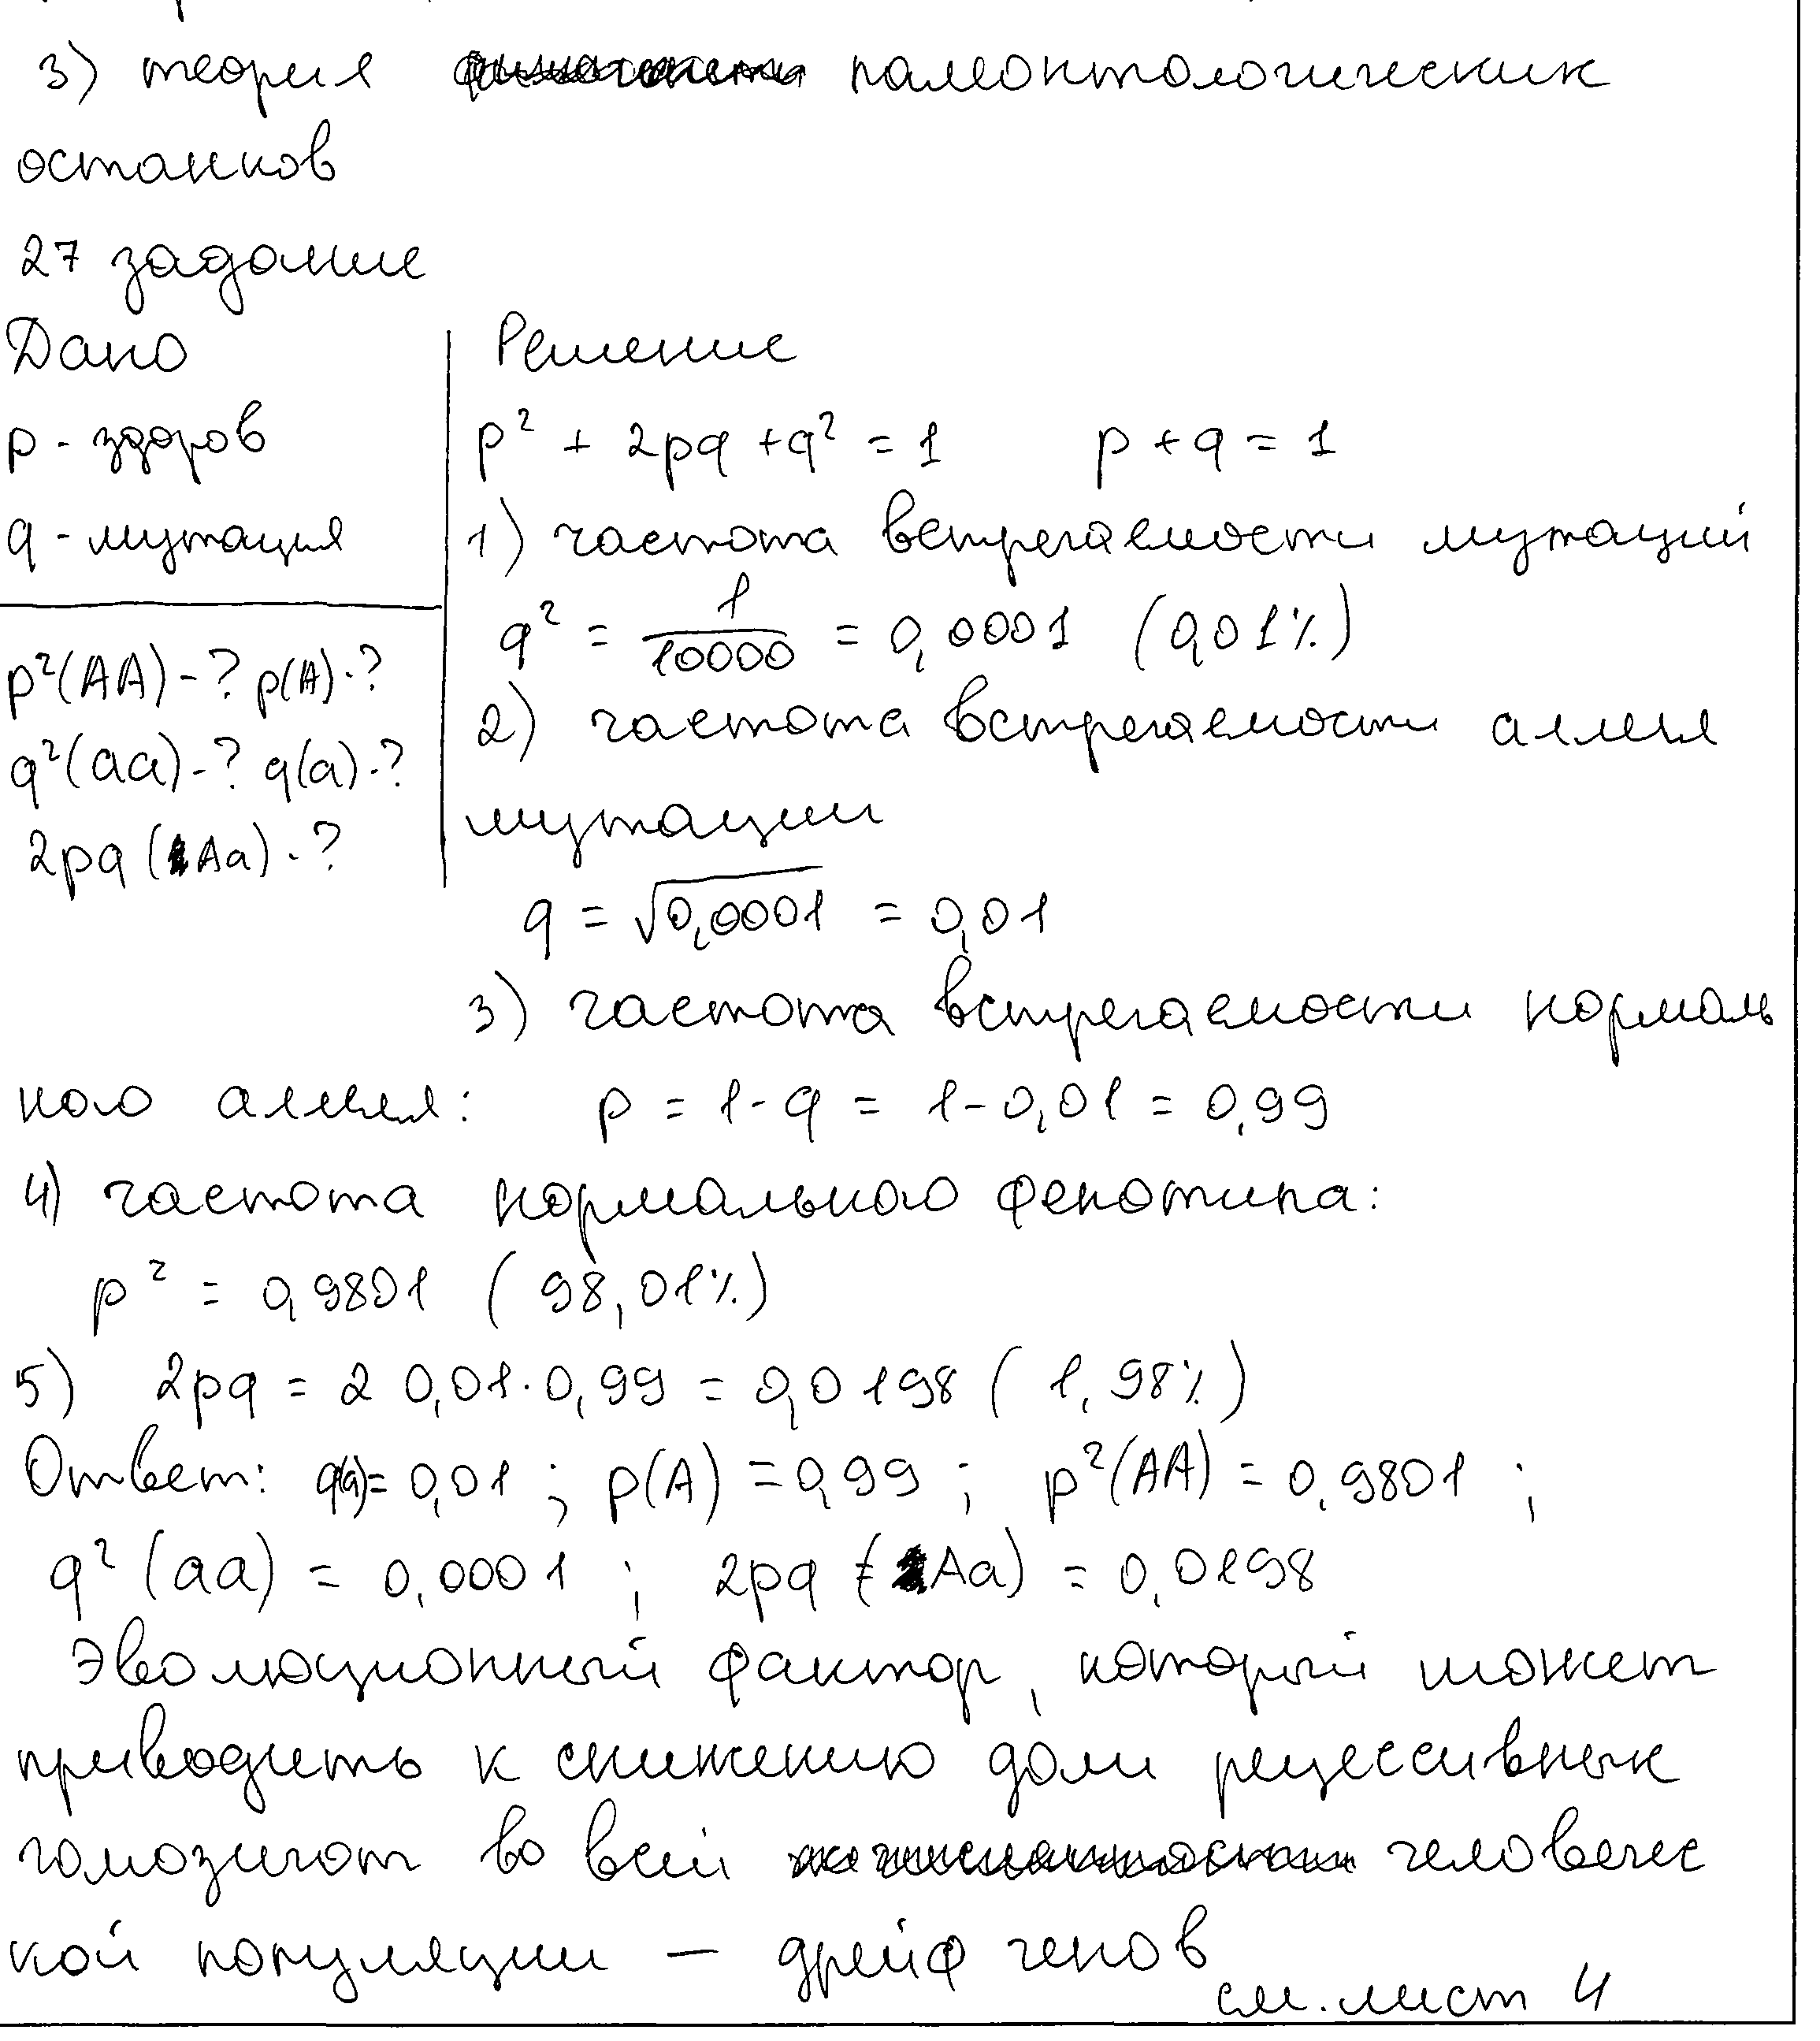 3) теория палеонтологических
останков
27 задание
Дано
р - здоров
q - мутация
p²(AA) - ? p(A) - ?
q²(aa) - ? q(a) - ?
2pq (Aa) - ?
Решение
p² + 2pq + q² = 1 p + q = 1
1) частота встречаемости мутаций
q² = 1/10000 = 0,0001 (0,01%)
2) частота встречаемости аллеля
мутации
q = √0,0001 = 0,01
3) частота встречаемости нормаль
ного аллеля: p = 1 - q = 1 - 0,01 = 0,99
4) частота нормального фенотипа:
p² = 0,9801 (98,01%)
5) 2pq = 2 0,01 · 0,99 = 0,0198 (1,98%)
Ответ: q(a) = 0,01 ; p(A) = 0,99 ; p²(AA) = 0,9801 ;
q² (aa) = 0,0001 ; 2pq (Aa) = 0,0198
Эволюционный фактор, который может
приводить к снижению доли рецессивных
гомозигот во всей человечес
кой популяции — дрейф генов
см. лист 4